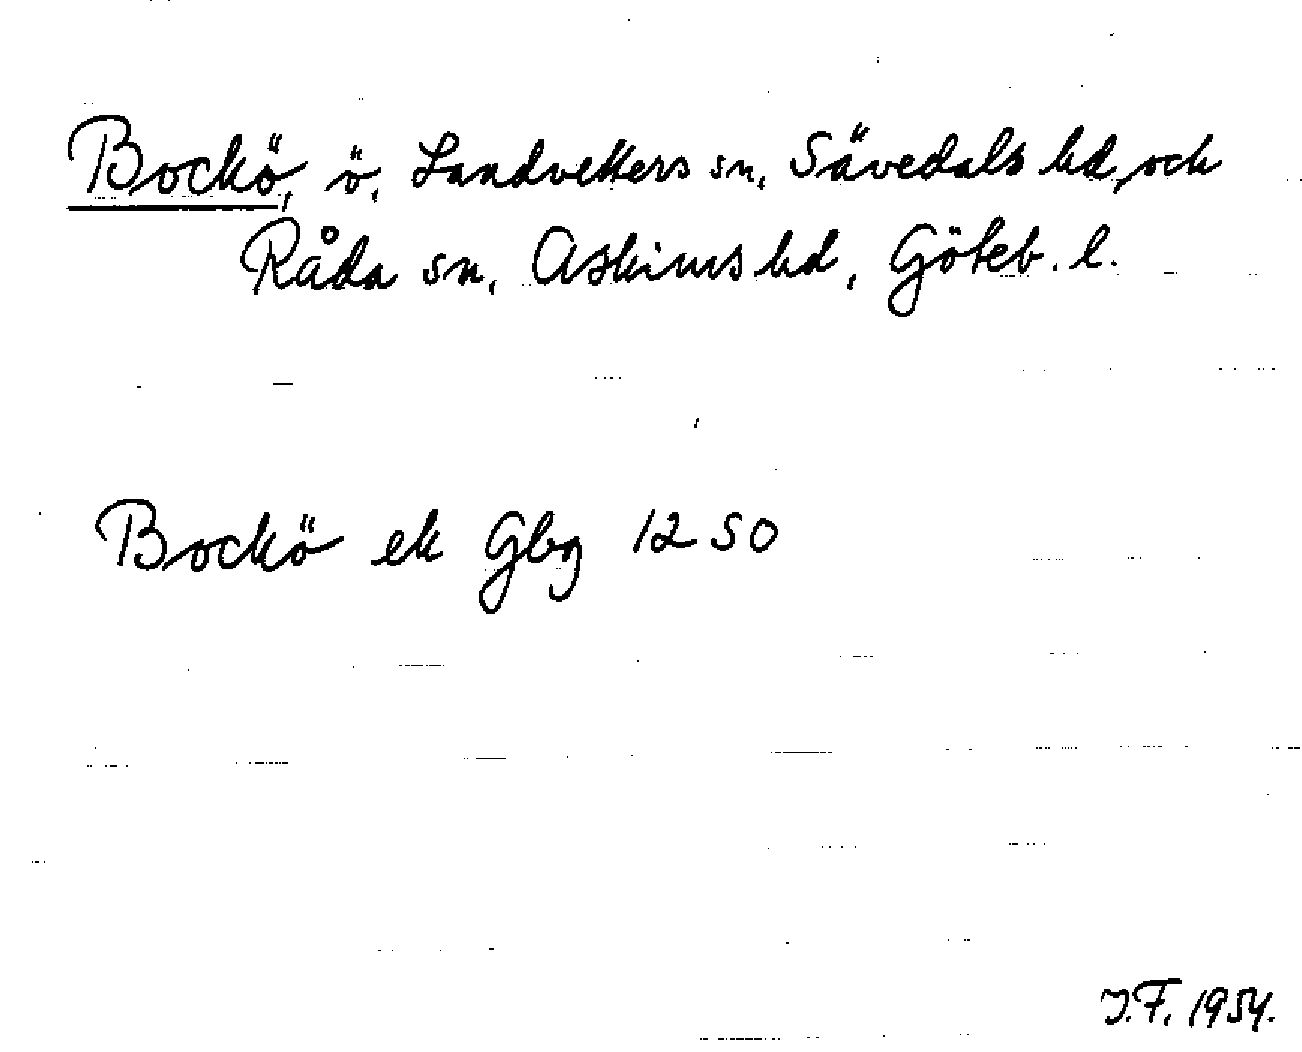 Bockö, ö, Landvetters sn, Sävedals hd, och
Råda sn, Askims hd, Göteb. l.
Bockö ek Gbg 1250
J.F. 1954.